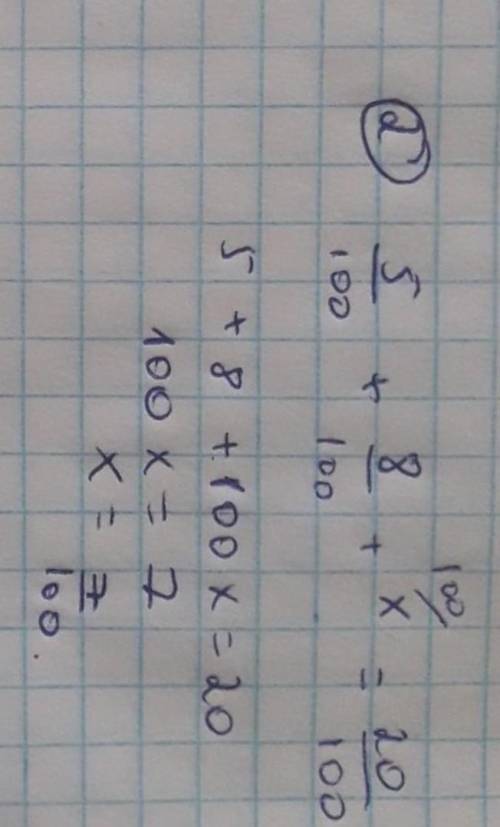 2) 5/100 + 8/100 + x 100/ = 20/100
5 + 8 + 100 x = 20
100 x = 7
x = 7/100